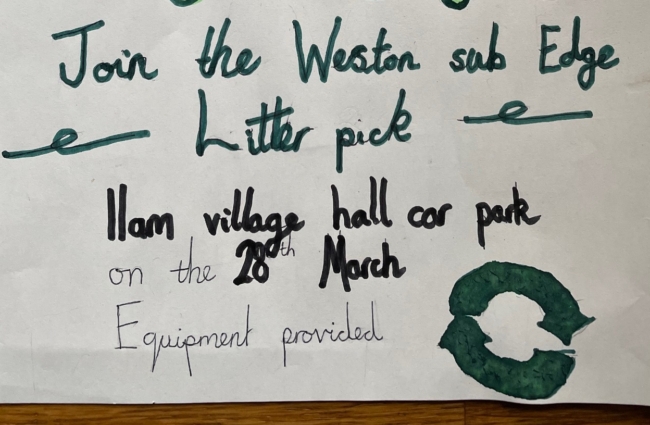 Join the Weston sub Edge
Litter pick
11am village hall car park
on the 28th March
Equipment provided